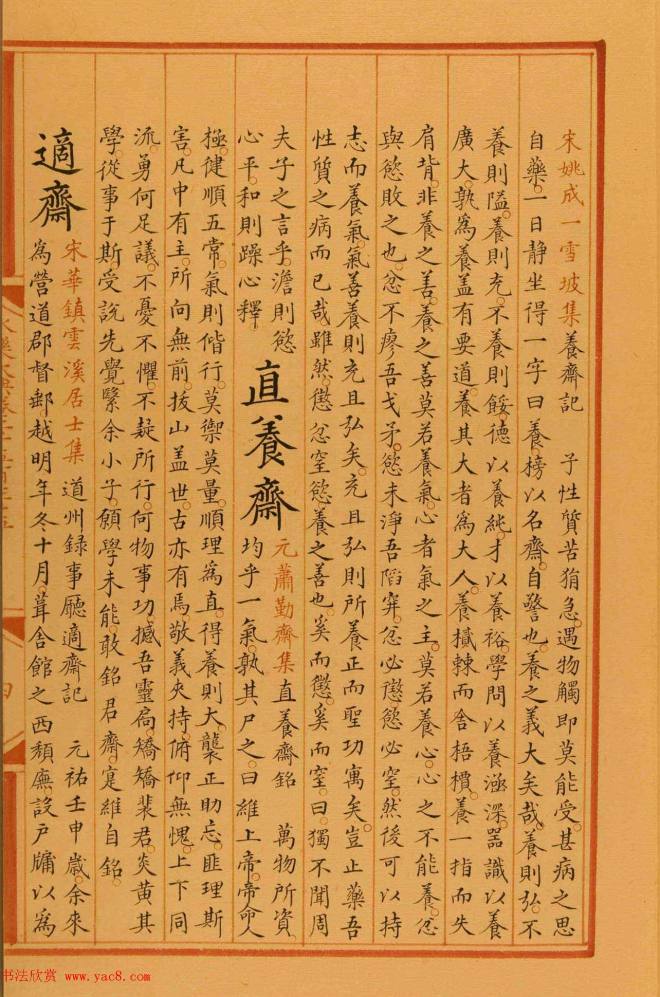 宋姚成一雪坡集養齋記　予性質苦狷急。遇物觸即莫能受。甚病之思
自藥。一日静坐得一字曰養。榜以名齋。自警也。養之義大矣哉。養則弘。不
養則隘。養則充。不養則餒。德以養純。才以養裕。學問以養涵深。器識以養
廣大。孰為養盖有要道。養其大者為大人。養樲棘而舍梧檟。養一指而失
肩背。非養之善。養之善莫若養氣。心者氣之主。莫若養心。心之不能養。忿
與慾敗之也。忿不廖吾戈矛。慾未淨吾陷穽。忿必懲慾必窒。然後可以持
志而養氣。氣善養則充且弘矣。充且弘則所養正而聖功寓矣。豈止藥吾
性質之病而已哉雖然。懲忿窒慾養之善也。奚而懲。奚而窒。曰。獨不聞周
夫子之言乎。澹則慾
心平。和則躁心釋
直養齋
元蕭勤齋集直養齋銘　萬物所資。
均乎一氣。孰其尸之。曰維上帝。帝命人
極。健順五常。氣則偕行。莫禦莫量。順理為直。得養則大。襲正助忘。匪理斯
害。凡中有主。所向無前。拔山盖世。古亦有焉。敬義夾持。俯仰無愧。上下同
流。勇何足議。不憂不懼。不疑所行。何物事功。撼吾靈扃。矯矯裴君。炎黄其
學。從事于斯受說先覺。繄余小子。願學未能。敢銘君齋。寔維自銘。
適齋
宋華鎮雲溪居士集　道州録事廳適齋記　元祐壬申歲。余來
為營道郡督郵越明年冬十月葺舍館之西頹廡。設戶牖以為
书法欣赏 www.yac8.com